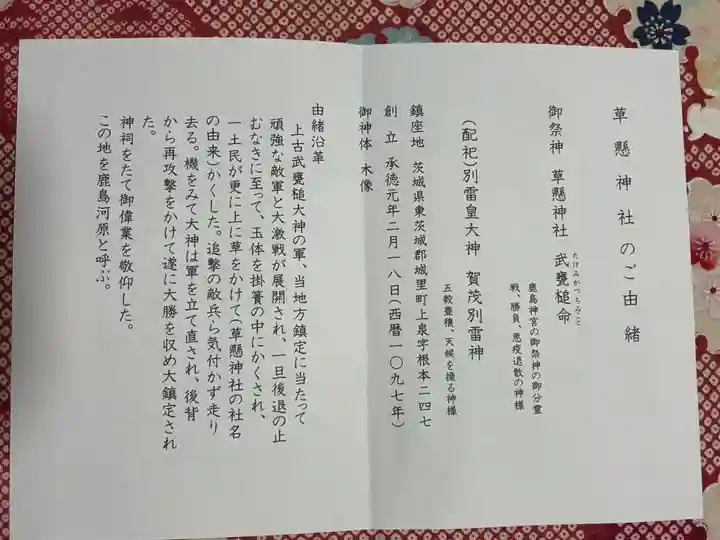 草懸神社のご由緒
御祭神 草懸神社 武甕槌命
たけみかつちみこと
鹿島神宮の御祭神の御分霊
戦、勝負、悪疫退散の神様
(配祀)別雷皇大神 賀茂別雷神
五穀豊穣、天候を操る神様
鎮座地 茨城県東茨城郡城里町上泉字根本二四七
創立 承徳元年二月一八日(西暦一〇九七年)
御神体 木像
由緒沿革
上古武甕槌大神の軍、当地方鎮定に当たって
頑強な敵軍と大激戦が展開され、一旦後退の止
むなきに至って、玉体を掛簀の中にかくされ、
一土民が更に上に草をかけて(草懸神社の社名
の由来)かくした。追撃の敵兵ら気付かず走り
去る。機をみて大神は軍を立て直され、後背
から再攻撃をかけて遂に大勝を収め大鎮定され
た。
神祠をたて御偉業を敬仰した。
この地を鹿島河原と呼ぶ。